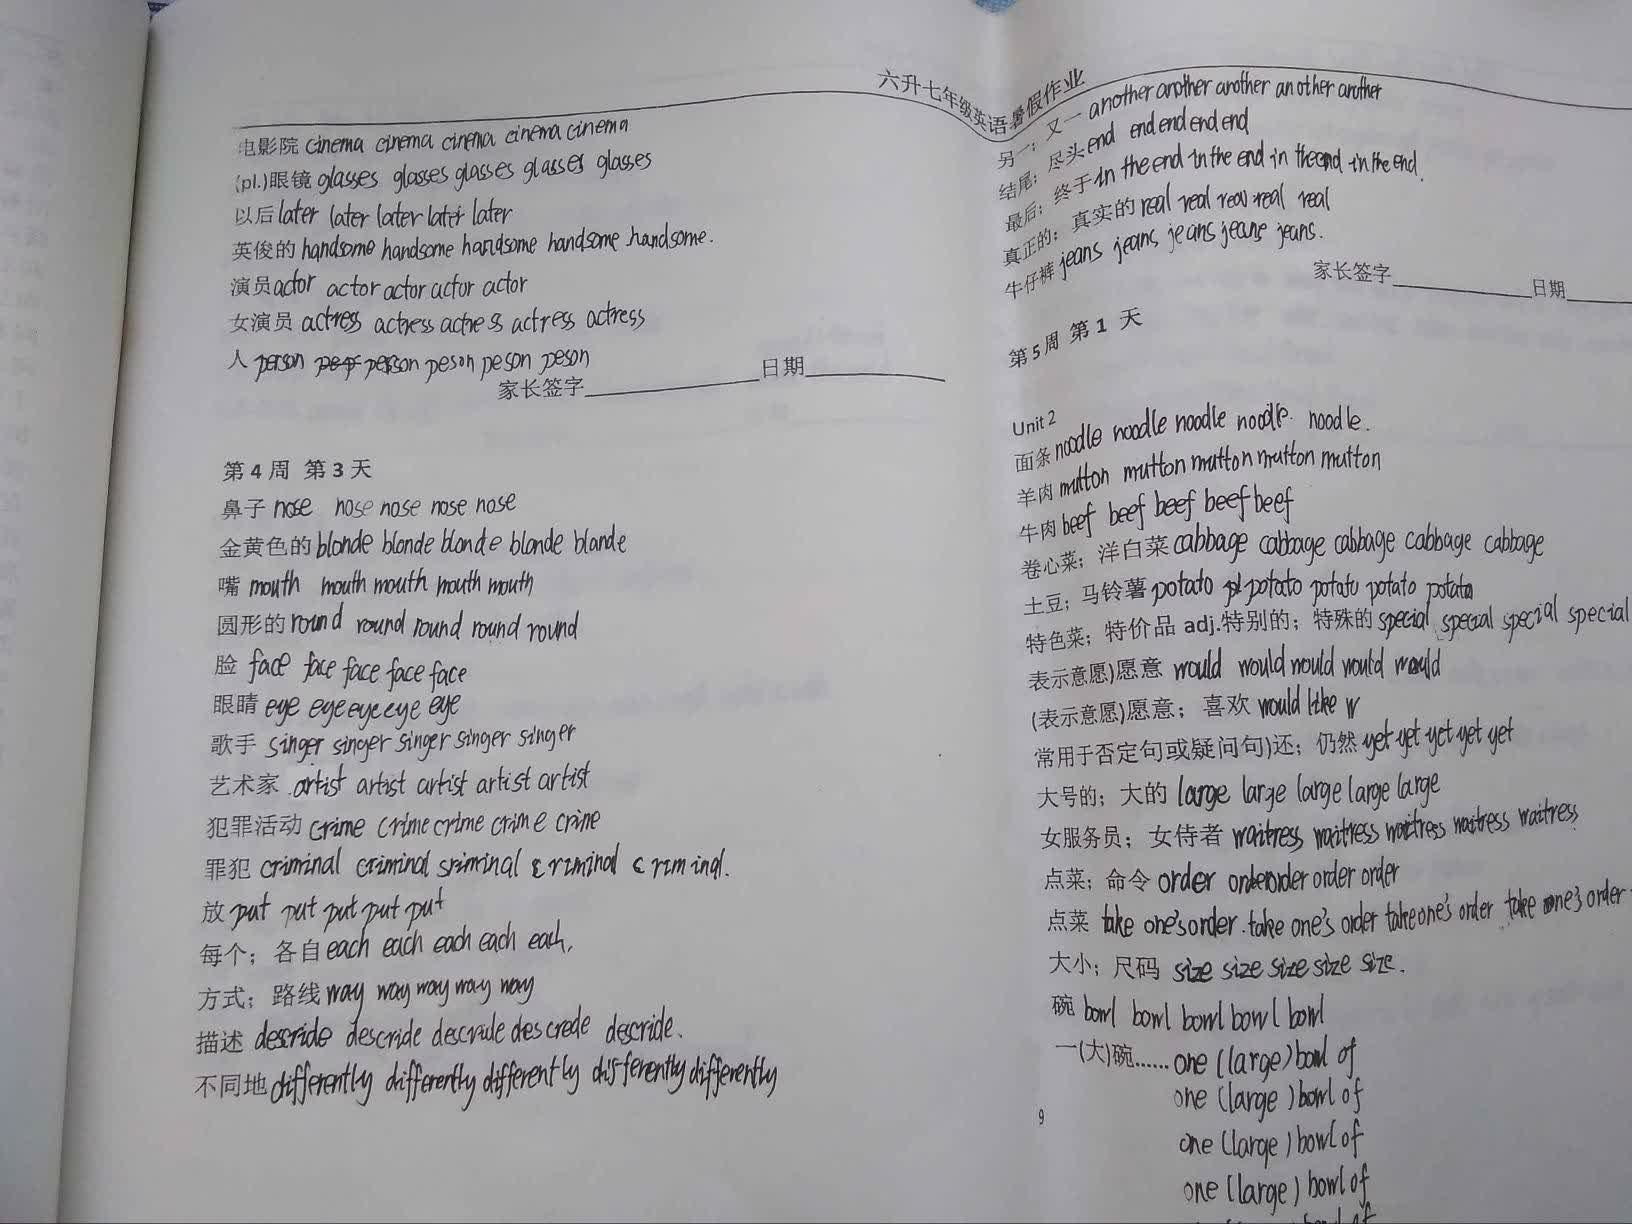 六升七年级英语暑假作业
电影院 cinema cinema cinema cinema cinema
(pl.)眼镜 glasses glasses glasses glasses glasses
以后 later later later later later
英俊的 handsome handsome handsome handsome handsome.
演员 actor actor actor actor actor
女演员 actress actress actress actress actress
人 person person peson peson peson
家长签字 日期
第 4 周 第 3 天
鼻子 nose nose nose nose nose
金黄色的 blonde blonde blonde blonde blande
嘴 mouth mouth mouth mouth mouth
圆形的 round round round round round
脸 face face face face face
眼睛 eye eye eye eye eye
歌手 singer singer singer singer singer
艺术家 artist artist artist artist artist
犯罪活动 crime crime crime crime crime
罪犯 criminal criminal sriminal criminal criminal.
放 put put put put put
每个；各自 each each each each each.
方式；路线 way way way way way
描述 descride descride descride descrede descride.
不同地 differently differently differently differently differently
另一；又一 another another another another another
结尾；尽头 end end end end end
最后；终于 in the end in the end in the end in the end.
真正的；真实的 real real real real real
牛仔裤 jeans jeans jeans jeans jeans.
家长签字 日期
第 5 周 第 1 天
Unit 2
面条 noodle noodle noodle noodle. noodle.
羊肉 mutton mutton mutton mutton mutton
牛肉 beef beef beef beef beef
卷心菜；洋白菜 cabbage cabbage cabbage cabbage cabbage
土豆；马铃薯 potato potato potato potato potato
特色菜；特价品 adj.特别的；特殊的 special special special special
表示意愿)愿意 would would would would would
(表示意愿)愿意；喜欢 would like w
常用于否定句或疑问句)还；仍然 yet yet yet yet yet
大号的；大的 large large large large large
女服务员；女侍者 waitress waitress waitress waitress waitress
点菜；命令 order order order order order
点菜 take one's order. take one's order take one's order take one's order
大小；尺码 size size size size size.
碗 bowl bowl bowl bowl bowl
一(大)碗…… one (large) bowl of
one (large) bowl of
one (large) bowl of
one (large) bowl of
9